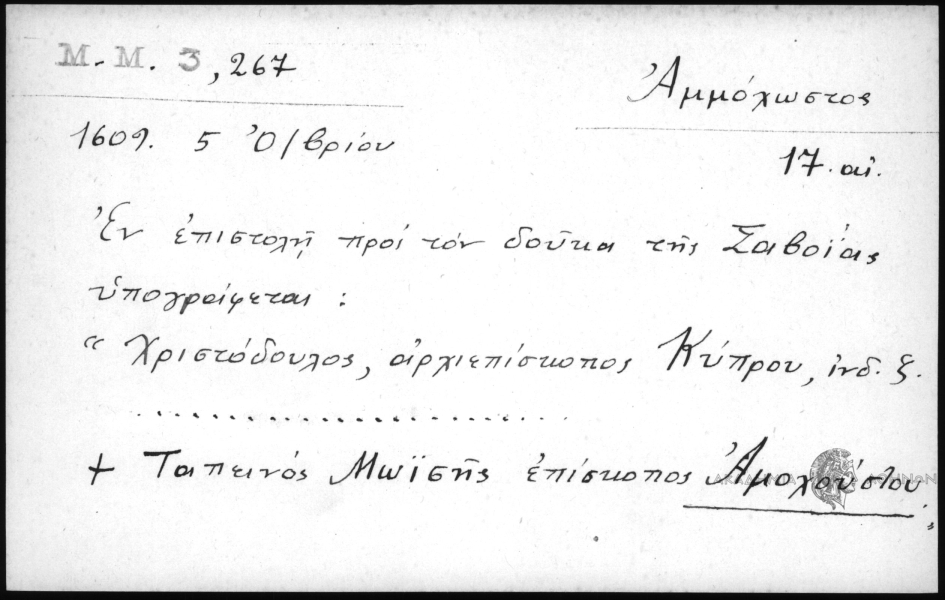 Μ. Μ. 3, 267
Ἀμμόχωστος
1609. 5 Ὀ/βρίου
17. αἰ.
Ἐν ἐπιστολῇ πρὸς τὸν δοῦκα τῆς Σαβοΐας
ὑπογράφεται :
“ Χριστόδουλος, ἀρχιεπίσκοπος Κύπρου, ἰνδ. ξ.
...............................
+ Ταπεινός Μωϊσῆς ἐπίσκοπος Ἀμοχούστου „
ΑΚΑΔΗΜΙΑ ΑΘΗΝΩΝ